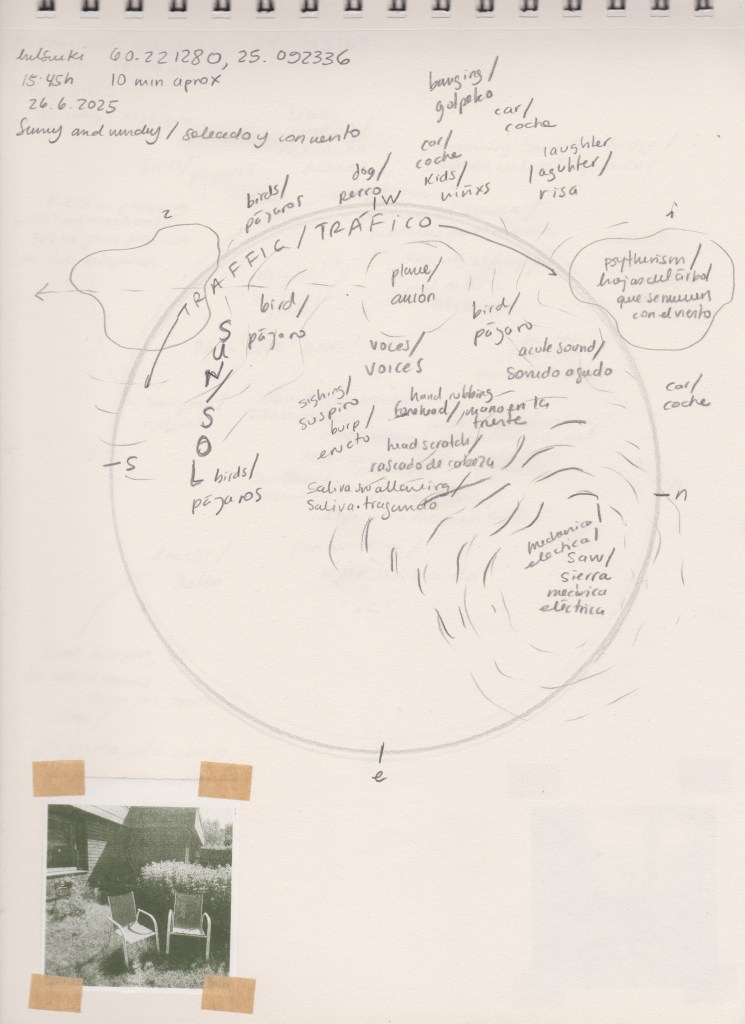 Helsinki 60.221280, 25.092336
15:45h 10 min aprox
26.6.2025
Sunny and windy / soleado y con viento
banging/
golpeo
car/
coche
car/
coche
laughter
laguhter/
risa
kids/
niñxs
dog/
perro
birds/
pájaros
w
2
1
TRAFFIC / TRÁFICO
psytherism/
hojas del árbol
que se mueven
con el viento
plane/
avión
bird/
pájaro
bird/
pájaro
SUN/SOL
voces/
voices
acute sound/
sonido agudo
car/
coche
sighing/
suspiro
burp/
eructo
hand rubbing
forehead/mano en la
frente
head scratch/
rascado de cabeza
s
birds/
pájaros
saliva swallowing/
saliva tragando
n
mechanical
electrical
saw/
sierra
mecánica
eléctrica
e